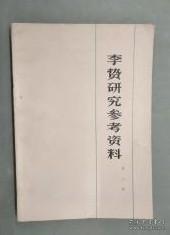 李贽研究参考资料